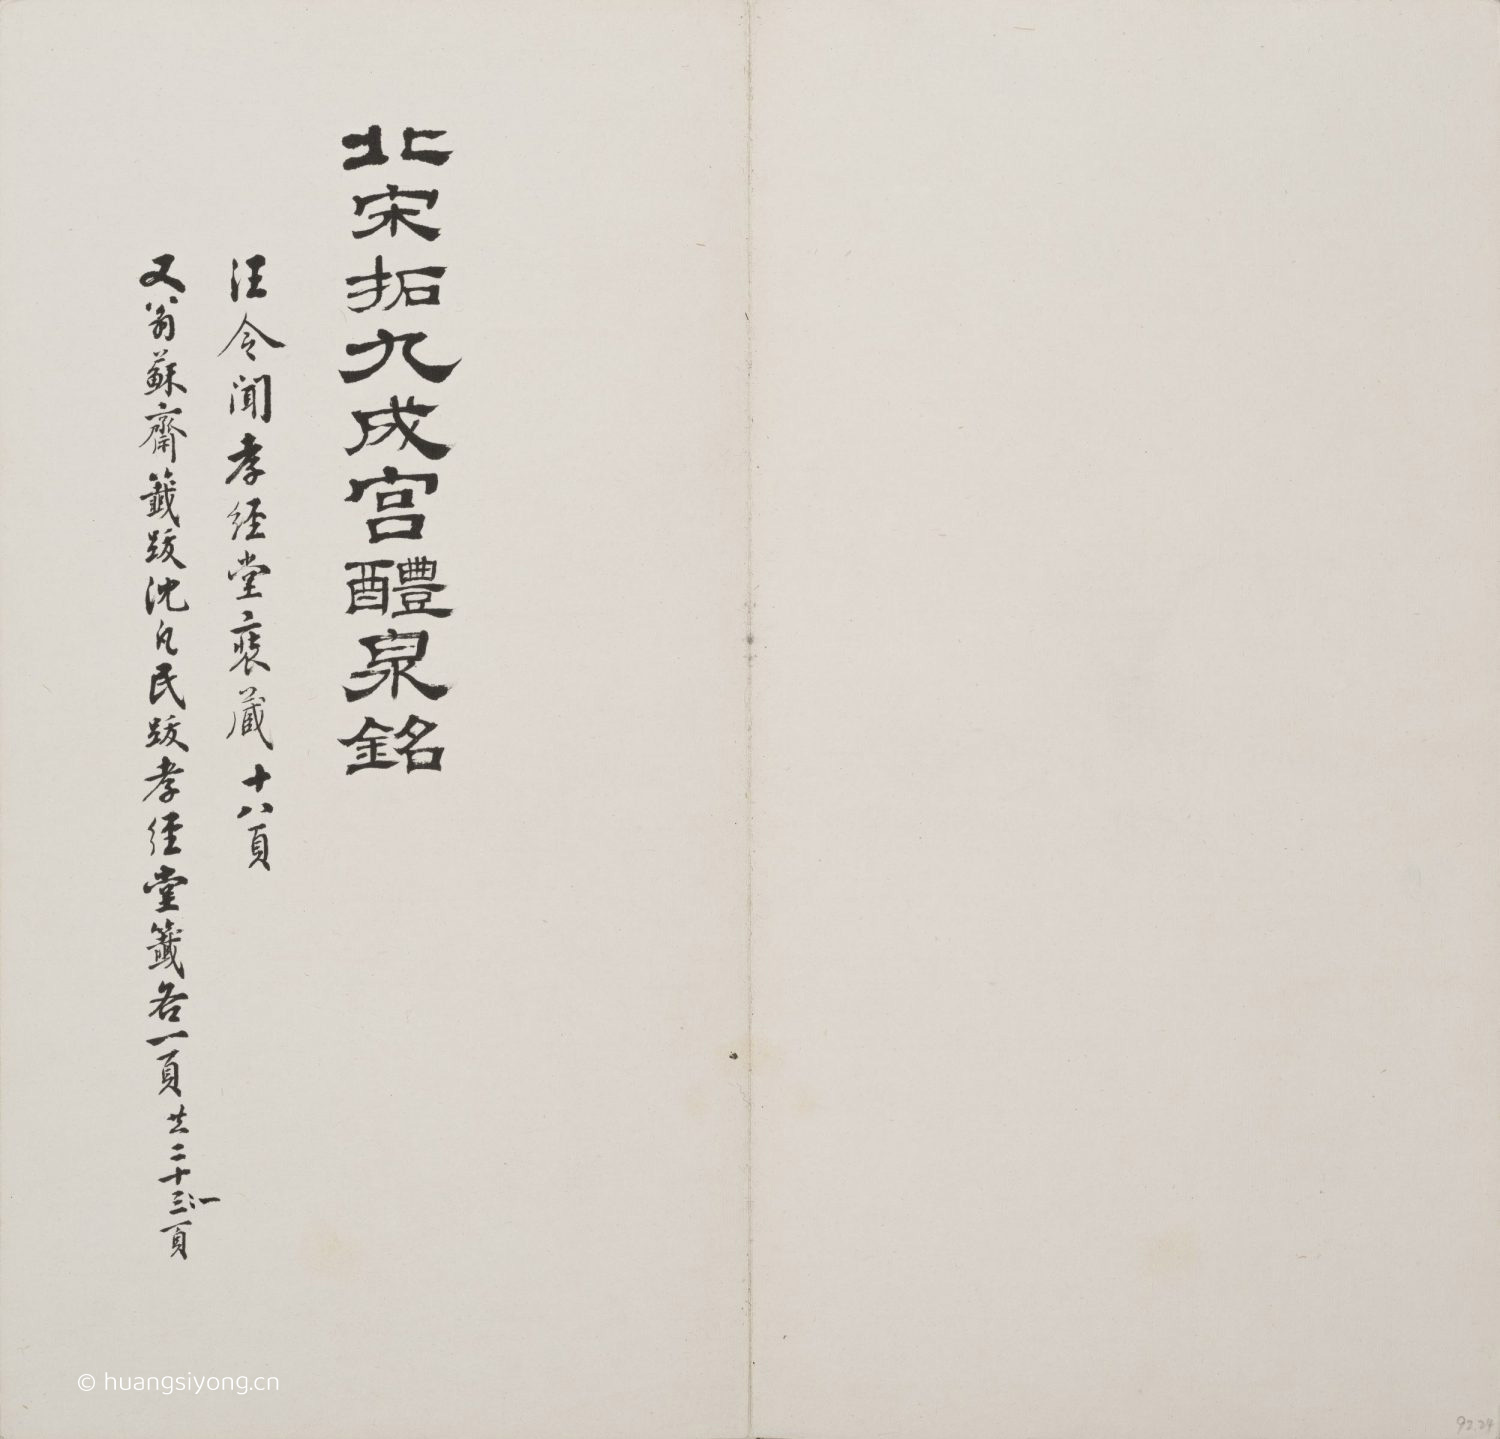 北宋拓九成宮醴泉銘
汪令聞孝經堂褱藏十八頁
又翁蘇齋籤跋沈凡民跋孝經堂籤各一頁共二十三頁
© huangsiyong.cn
92.24